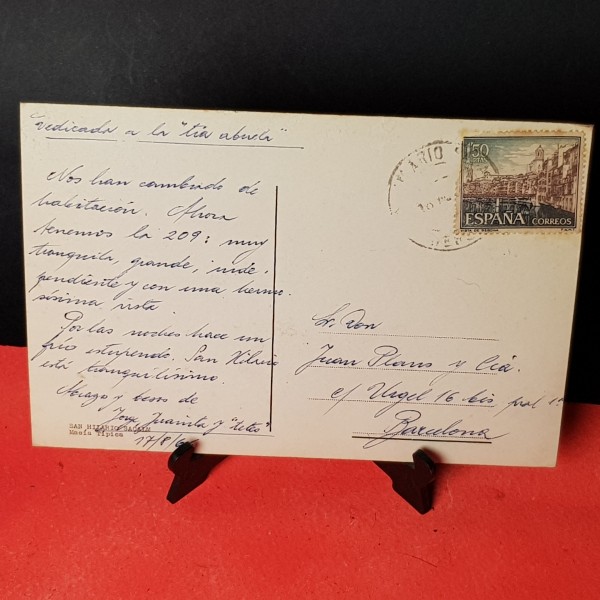 Dedicada a la "tía abuela"
Nos han cambiado de
habitación. Ahora
tenemos la 209: muy
tranquila, grande, inde-
pendiente y con una hermo-
sísima vista.
Por las noches hace un
frío estupendo. San Hilario
está tranquilísimo.
Abrazos y besos de
Juanita y "Tetes"
17/8/6
SAN HILARIO SACALM
Masía Típica
1'50
PTAS
ESPAÑA
CORREOS
VISTA DE GERONA
Sr. Don
Juan Plans y Cía.
c/ Urgel 16 bis pral 1ª
Barcelona